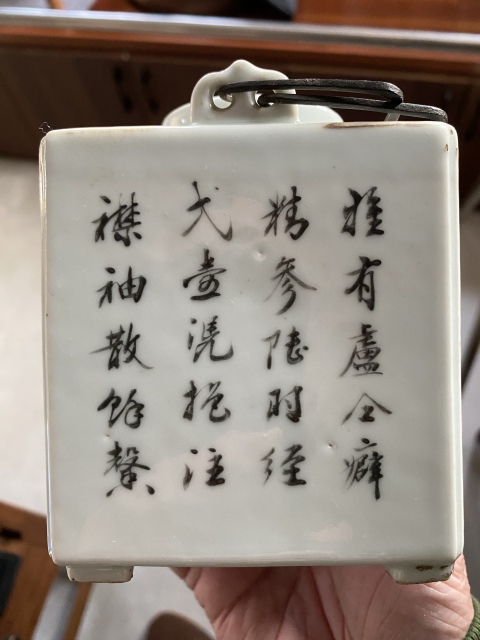 雅有盧仝癖
精參陸羽經
弌壺挹注
襟袖散餘馨